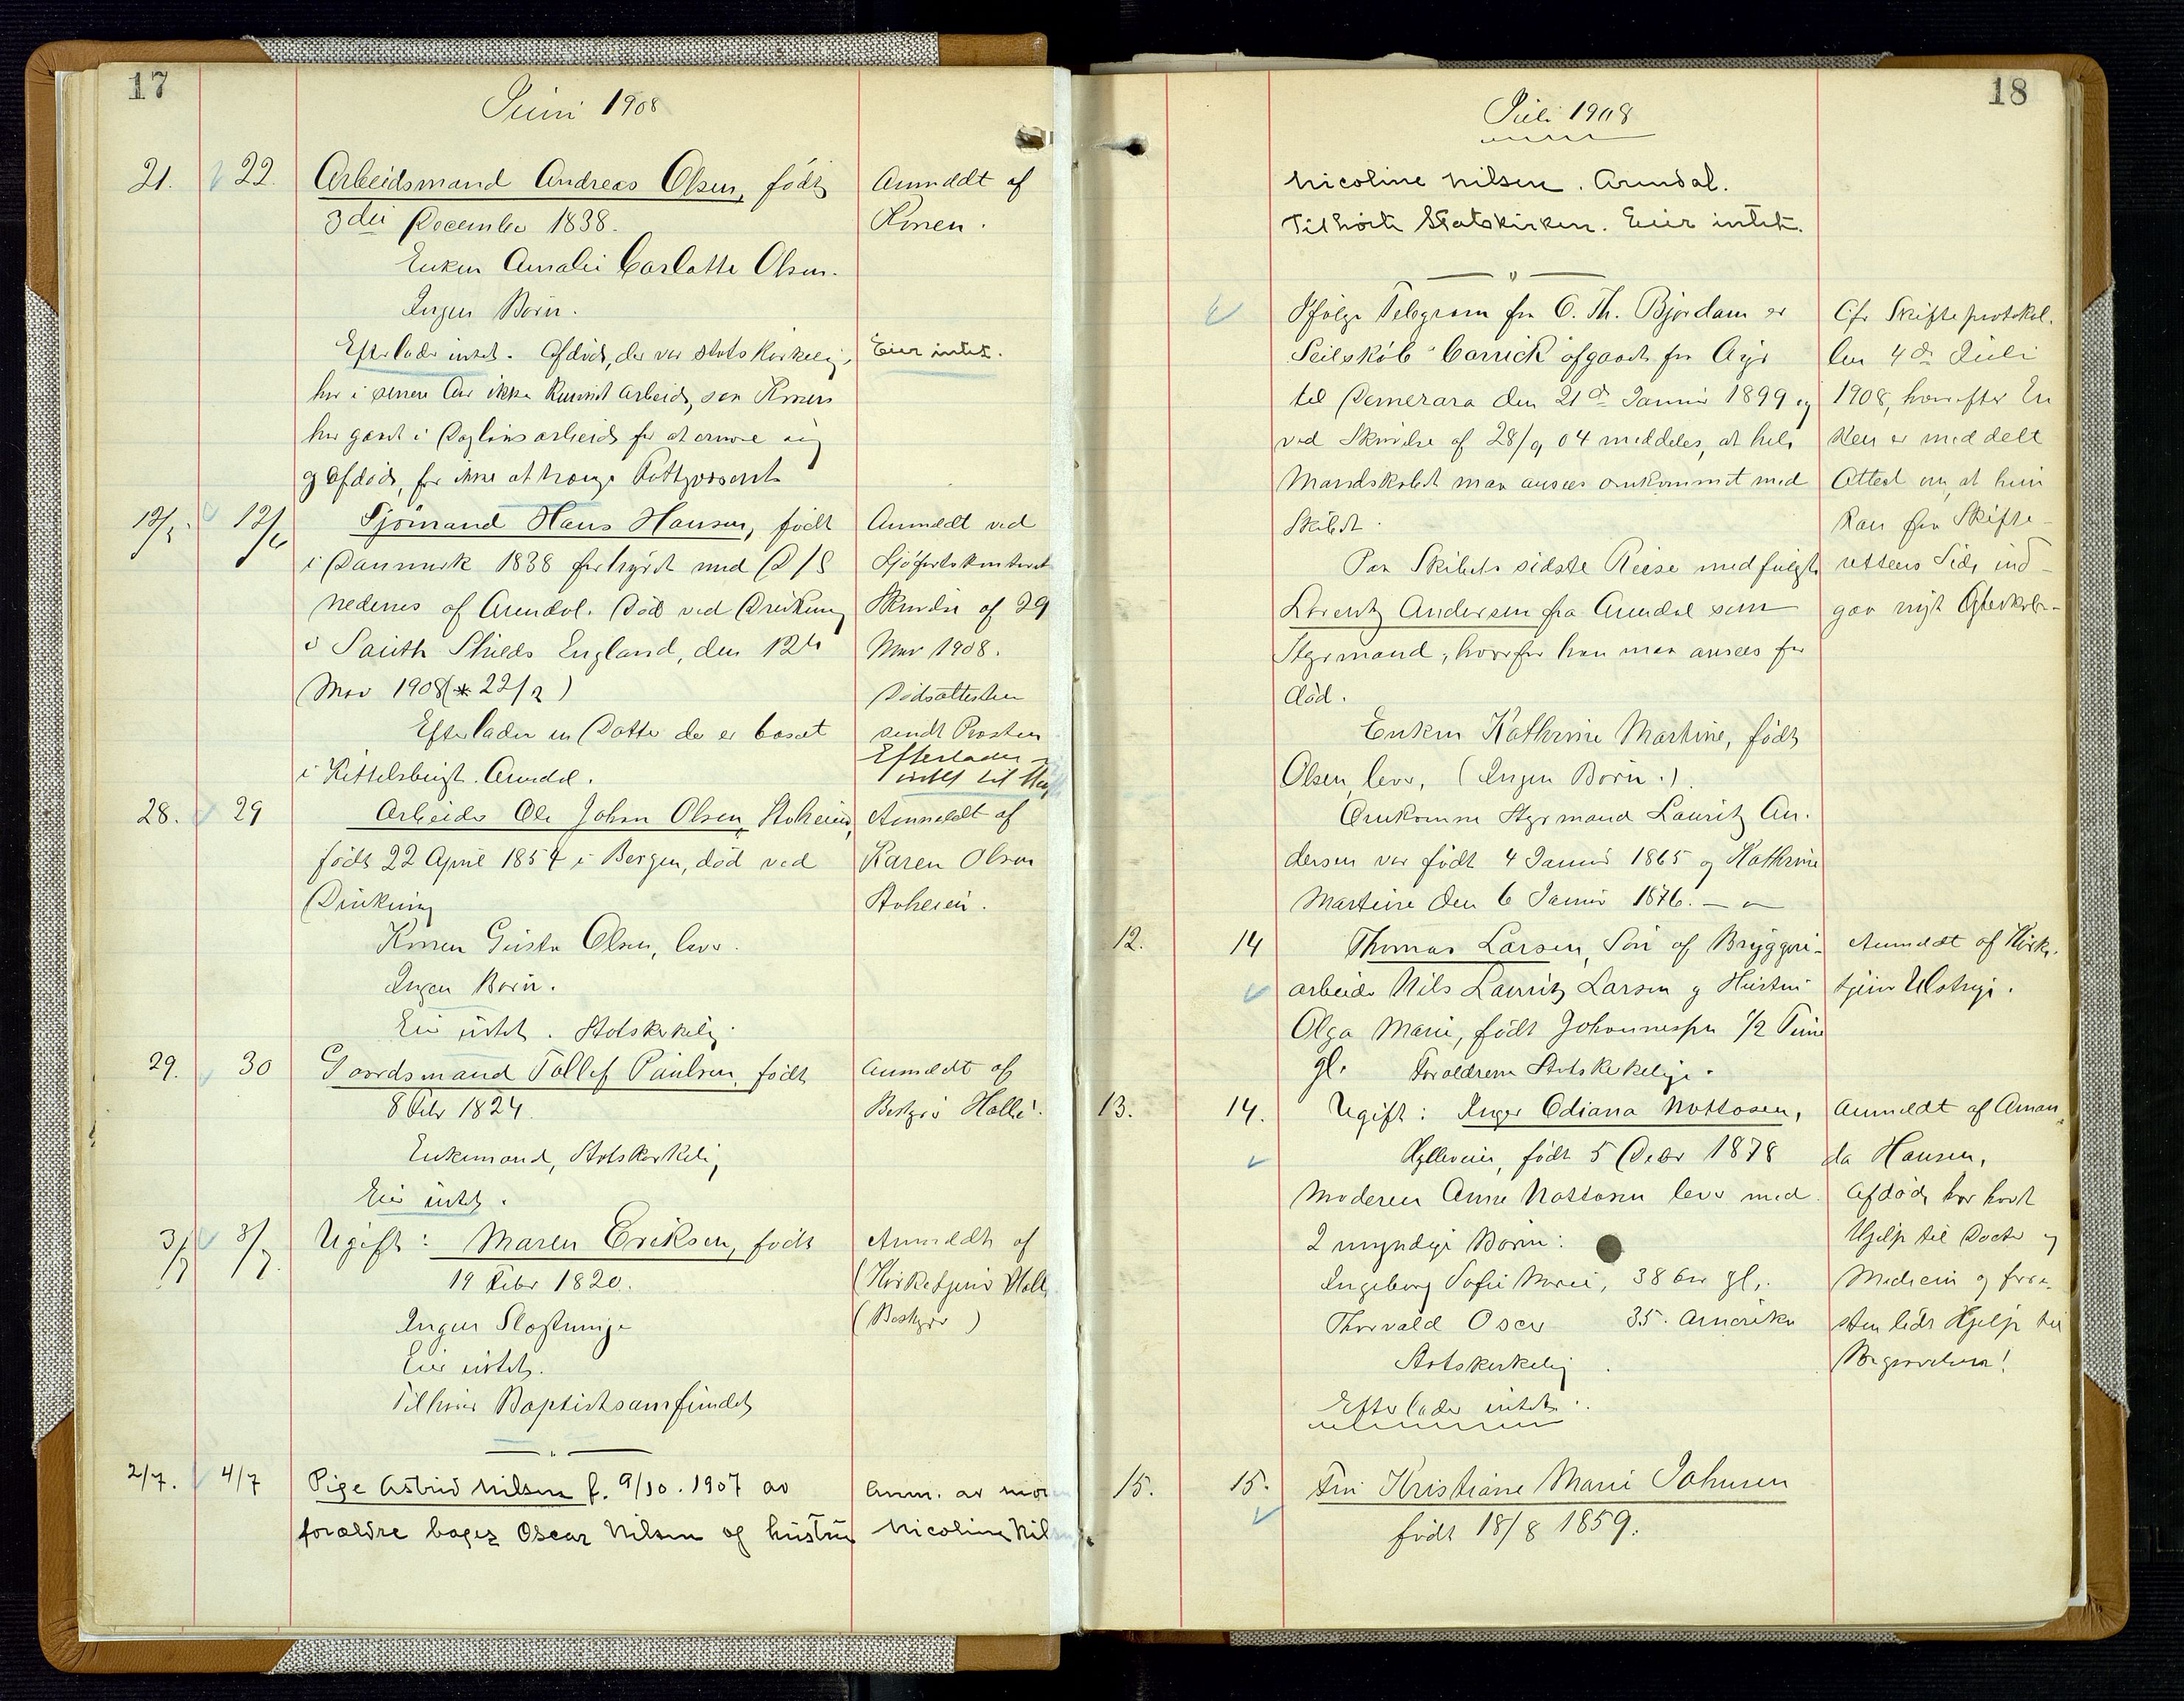 17
Juni 1908
21. 22. Arbeidsmand Andreas Olsen, født Anmeldt af
3die December 1838. Konen.
Enken Amalie Carlotte Olsen.
Ingen Børn.
Efterlader intet. Afdøde, der var statskirkelig, Eier intet.
har i senere Aar ikke kunnet arbeide, saa Konen
har gaaet i Daglønsarbeide for at ernære sig
og Afdøde, for ikke at trænge Fattigvæsenet
12/5. 12/6 Sjømand Hans Hansen, født Anmeldt ved
i Danmark 1838 forhyret med D/S Sjøfartskontoret
Nedenes af Arendal. Død ved Drukning Skrivelse af 29
i South Shields England, den 12te Mai 1908.
Mai 1908 (* 22/2) Dødsattesten
Efterlader en Datter der er bosat sendt Presten
Efterlader
i Kittelsbugt. Arendal. intet til
28. 29 Arbeider Ole Johan Olsen, Stoheien, Anmeldt af
født 22 April 1854 i Bergen, død ved Karen Olsen
Drukning Stoheien.
Konen Gusta Olsen, lever.
Ingen Børn.
Eier intet. Statskirkelig.
29. 30 Gaardsmand Tollef Paulsen, født Anmeldt af
8 Febr 1824. Bestyrer Holle.
Enkemand, Statskirkelig
Eier intet.
3/7 3/7. Ugift: Maren Eriksen, født Anmeldt af
19 Febr 1820. (Kirketjener
Ingen Slægtninge (Bestyrer)
Eier intet.
Tilhører Baptistsamfundet
2/7. 4/7 Pige Astrid Nilsen f. 9/10. 1907 av Anm. av mor
forældre bager Oscar Nilsen og hustru Nicoline Nil
18
Juli 1908
Nicoline Nilsen. Arendal.
Tilhørte Statskirken. Eier intet.
Ifølge Telegram fra C. Th. Bjørdam er Cfr Skifteprotokol.
Seilskib "Carrick" afgaaet fra Ayr len 4de Juli
til Demerara den 21de Januar 1899 og 1908, hvorefter En
ved Skrivelse af 28/9 04 meddeles, at hele ken er meddelt
Mandskabet maa ansees omkommet med Attest om, at hun
Skibet. kan fra Skifte-
Paa Skibets sidste Reise medfulgte rettens Side ind-
Lorentz Andersen fra Arendal som gaa nyt Ægteskab.-
Styrmand, hvorfor han maa ansees for
død.
Enken Kathrine Martine, født
Olsen, lever, (Ingen Børn.)
Omkomne Styrmand Lauritz An.
dersen var født 4 Januar 1865 og Kathrine
Martine den 6 Januar 1876.
12. 14 Thomas Larsen, Søn af Bryggeri- Anmeldt af Kirke.
arbeider Nils Lauritz Larsen og Hustru tjener
Olga Marie, født Johannesen 1/2 Time
gl. Forældrene Statskirkelige.
13. 14. Ugift: Inger Odiana Nottosen, Anmeldt af Aman
Hylleveien, født 5 Decbr 1878 da Hansen,
Moderen Anne Nottosen lever med Afdøde har havt
2 myndige Børn: Hjelp til Doctor og
Ingeborg Sofie Marie, 38 Aar gl. Medicin og
Thorvald Oscar 35. Amerika Hjelp til
Statskirkelig. Begravelsen!
Efterlader intet.
15. 15. Fru Kristiane Marie Johnsen
født 18/8 1859.